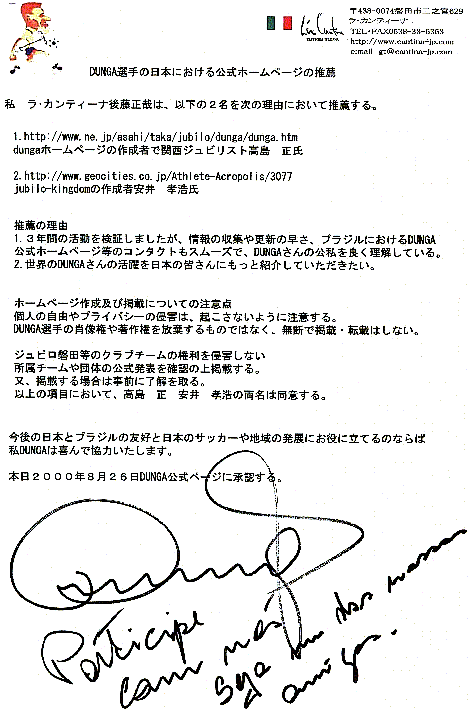 〒438-0074磐田市二之宮629
ラ・カンティーナ
TEL・FAX0538-33-5353
http://www.cantina-jp.com
e:mail gt@cantina-jp.com
DUNGA選手の日本における公式ホームページの推薦
私 ラ・カンティーナ後藤正哉は、以下の2名を次の理由において推薦する。
1.http://www.ne.jp/asahi/taka/jubilo/dunga/dunga.htm
dungaホームページの作成者で関西ジュビリスト高島 正氏
2.http://www.geocities.co.jp/Athlete-Acropolis/3077
jubilo-kingdomの作成者安井 孝浩氏
推薦の理由
1.3年間の活動を検証しましたが、情報の収集や更新の早さ、ブラジルにおけるDUNGA
公式ホームページ等のコンタクトもスムーズで、DUNGAさんの公私を良く理解している。
2.世界のDUNGAさんの活躍を日本の皆さんにもっと紹介していただきたい。
ホームページ作成及び掲載についての注意点
個人の自由やプライバシーの侵害は、起こさないように注意する。
DUNGA選手の肖像権や著作権を放棄するものではなく、無断で掲載・転載はしない。
ジュビロ磐田等のクラブチームの権利を侵害しない
所属チームや団体の公式発表を確認の上掲載する。
又、掲載する場合は事前に了解を取る。
以上の項目において、高島 正 安井 孝浩の両名は同意する。
今後の日本とブラジルの友好と日本のサッカーや地域の発展にお役に立てるのならば
私DUNGAは喜んで協力いたします。
本日2000年8月26日DUNGA公式ページに承認する。
Dunga
Participe
com nós
Seja um dos nossos
amigos.